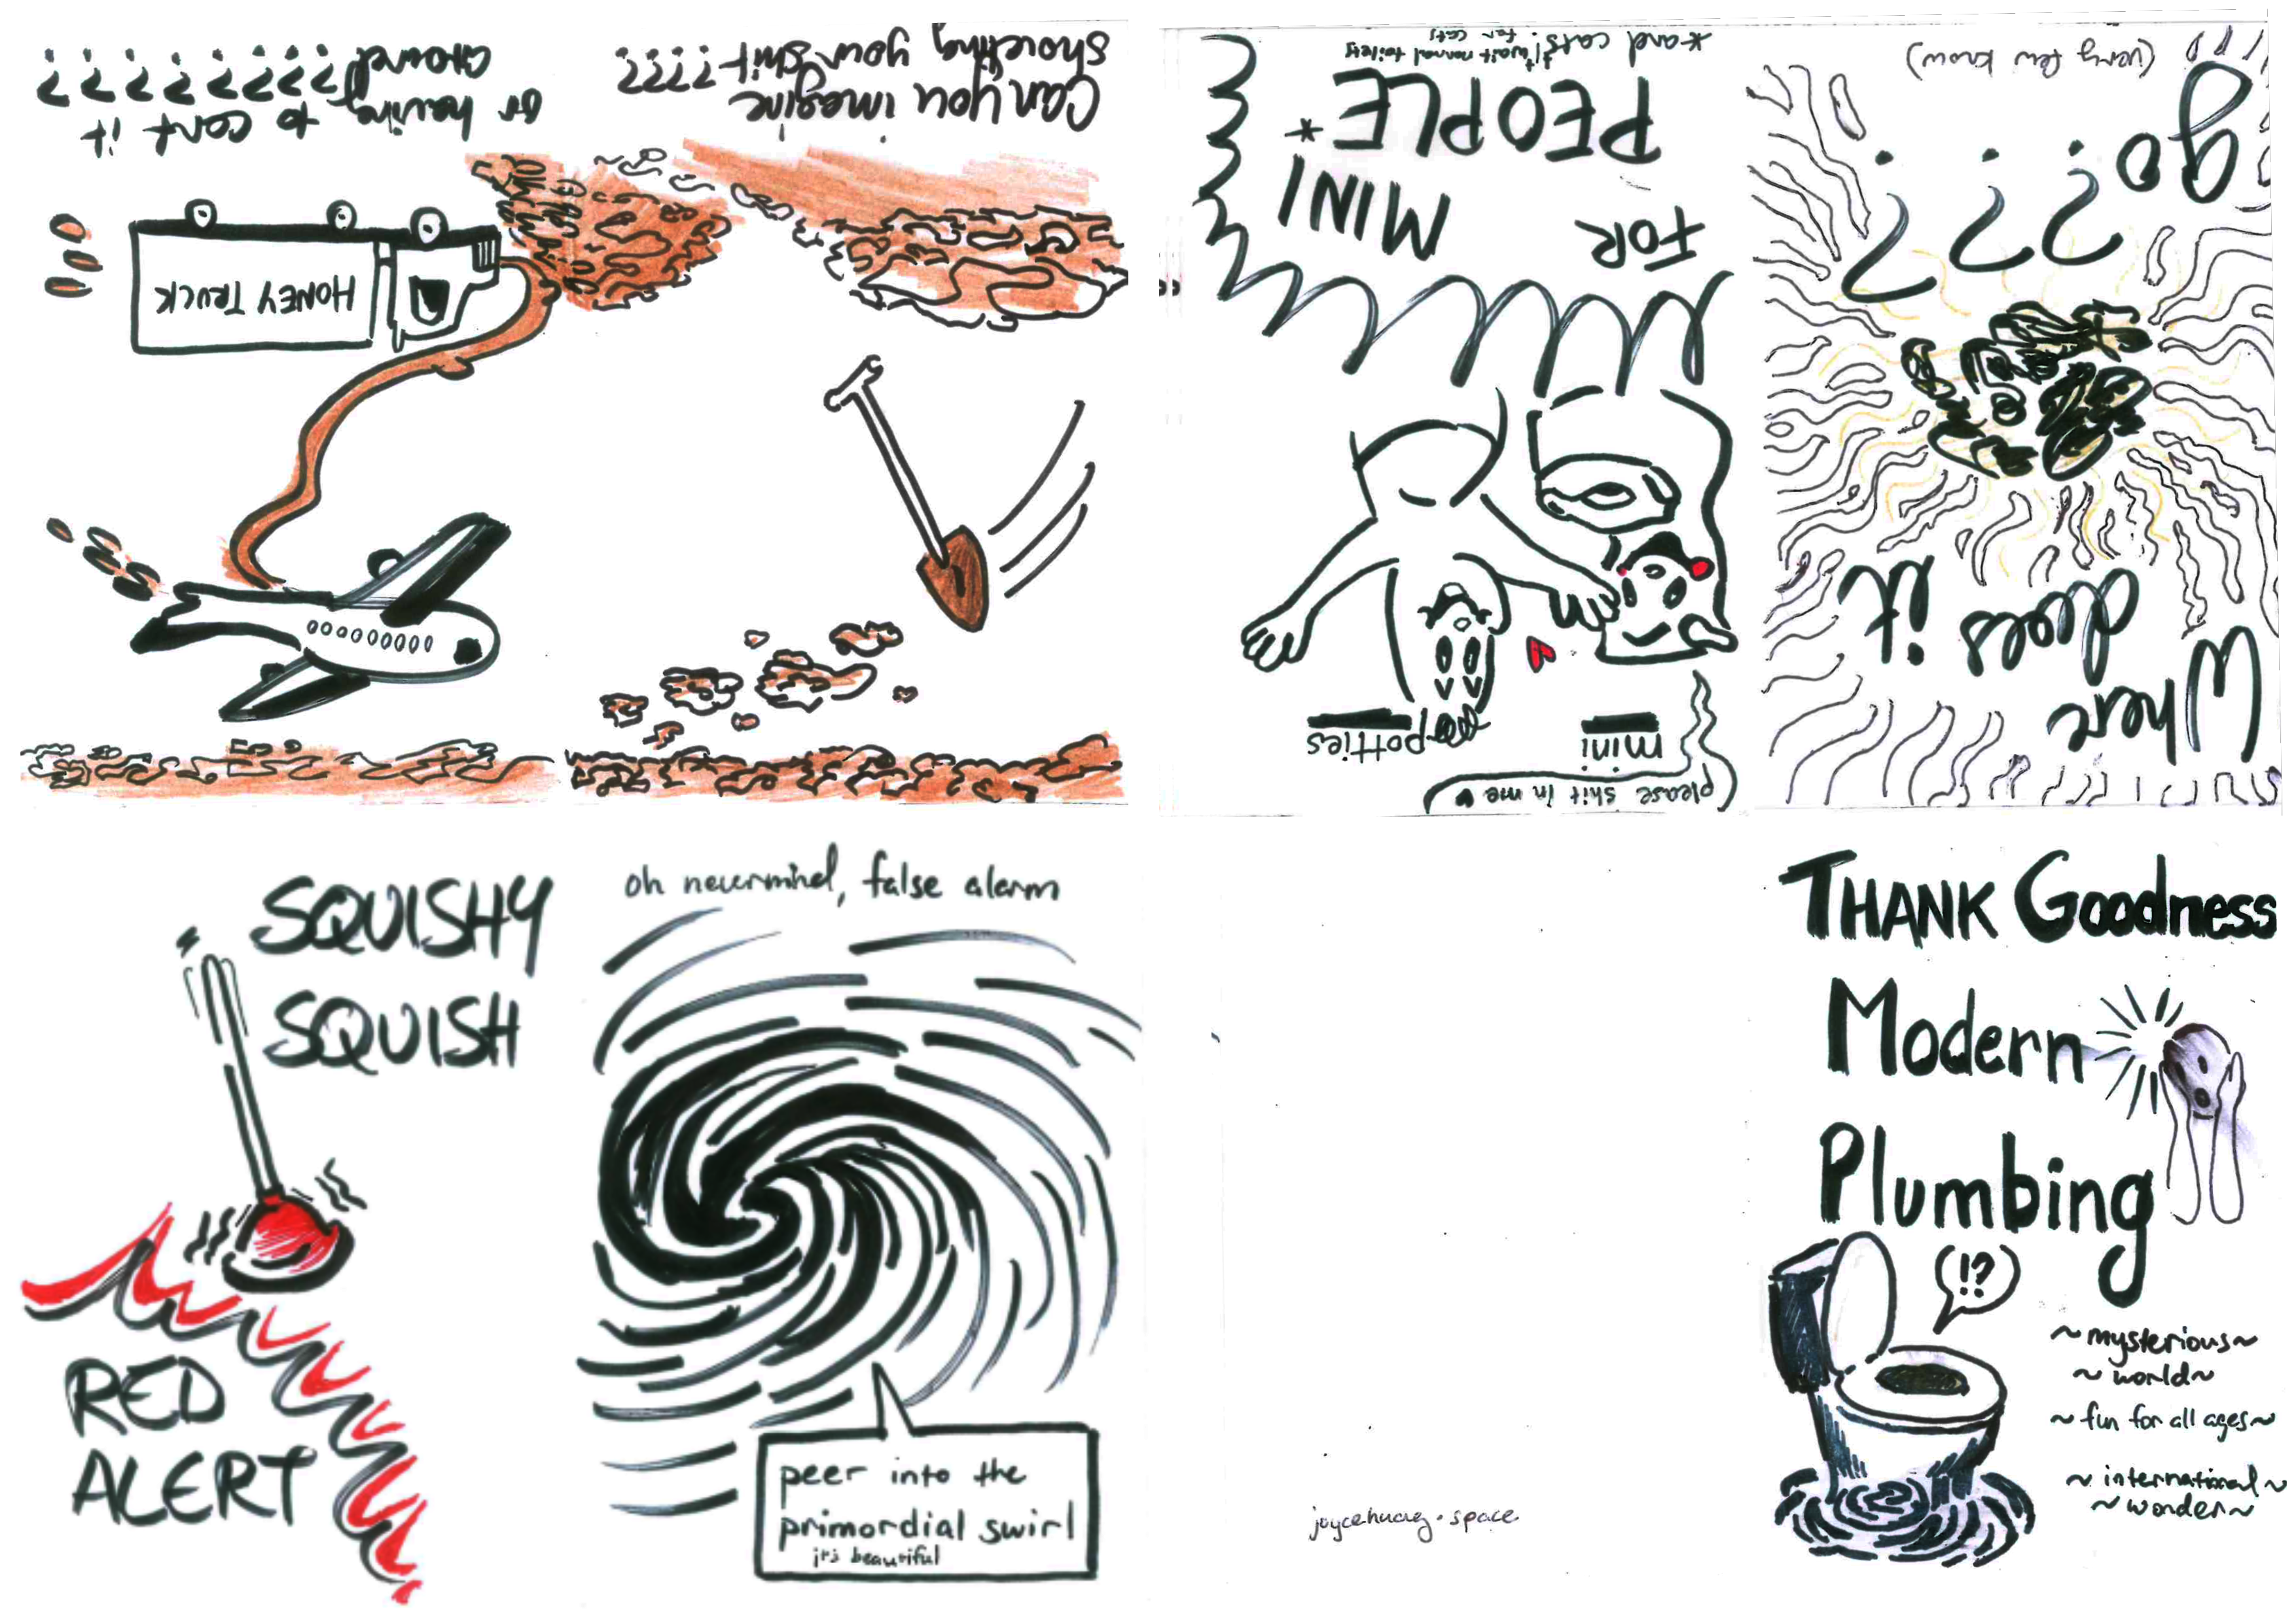 THANK Goodness
Modern
Plumbing
!?
~mysterious~
~world~
~fun for all ages~
~international~
~wonder~
Where
does it
go???
(very few know)
(please shit in me ♥
mini potties
FOR MINI
PEOPLE*
*and cats. I want normal toilets
for cats
Can you imagine
shoveling your shit????
HONEY TRUCK
or having to cart it
around????????
SQUISHY
SQUISH
RED
ALERT
oh nevermind, false alarm
peer into the
primordial swirl
it's beautiful
joycehuang.space